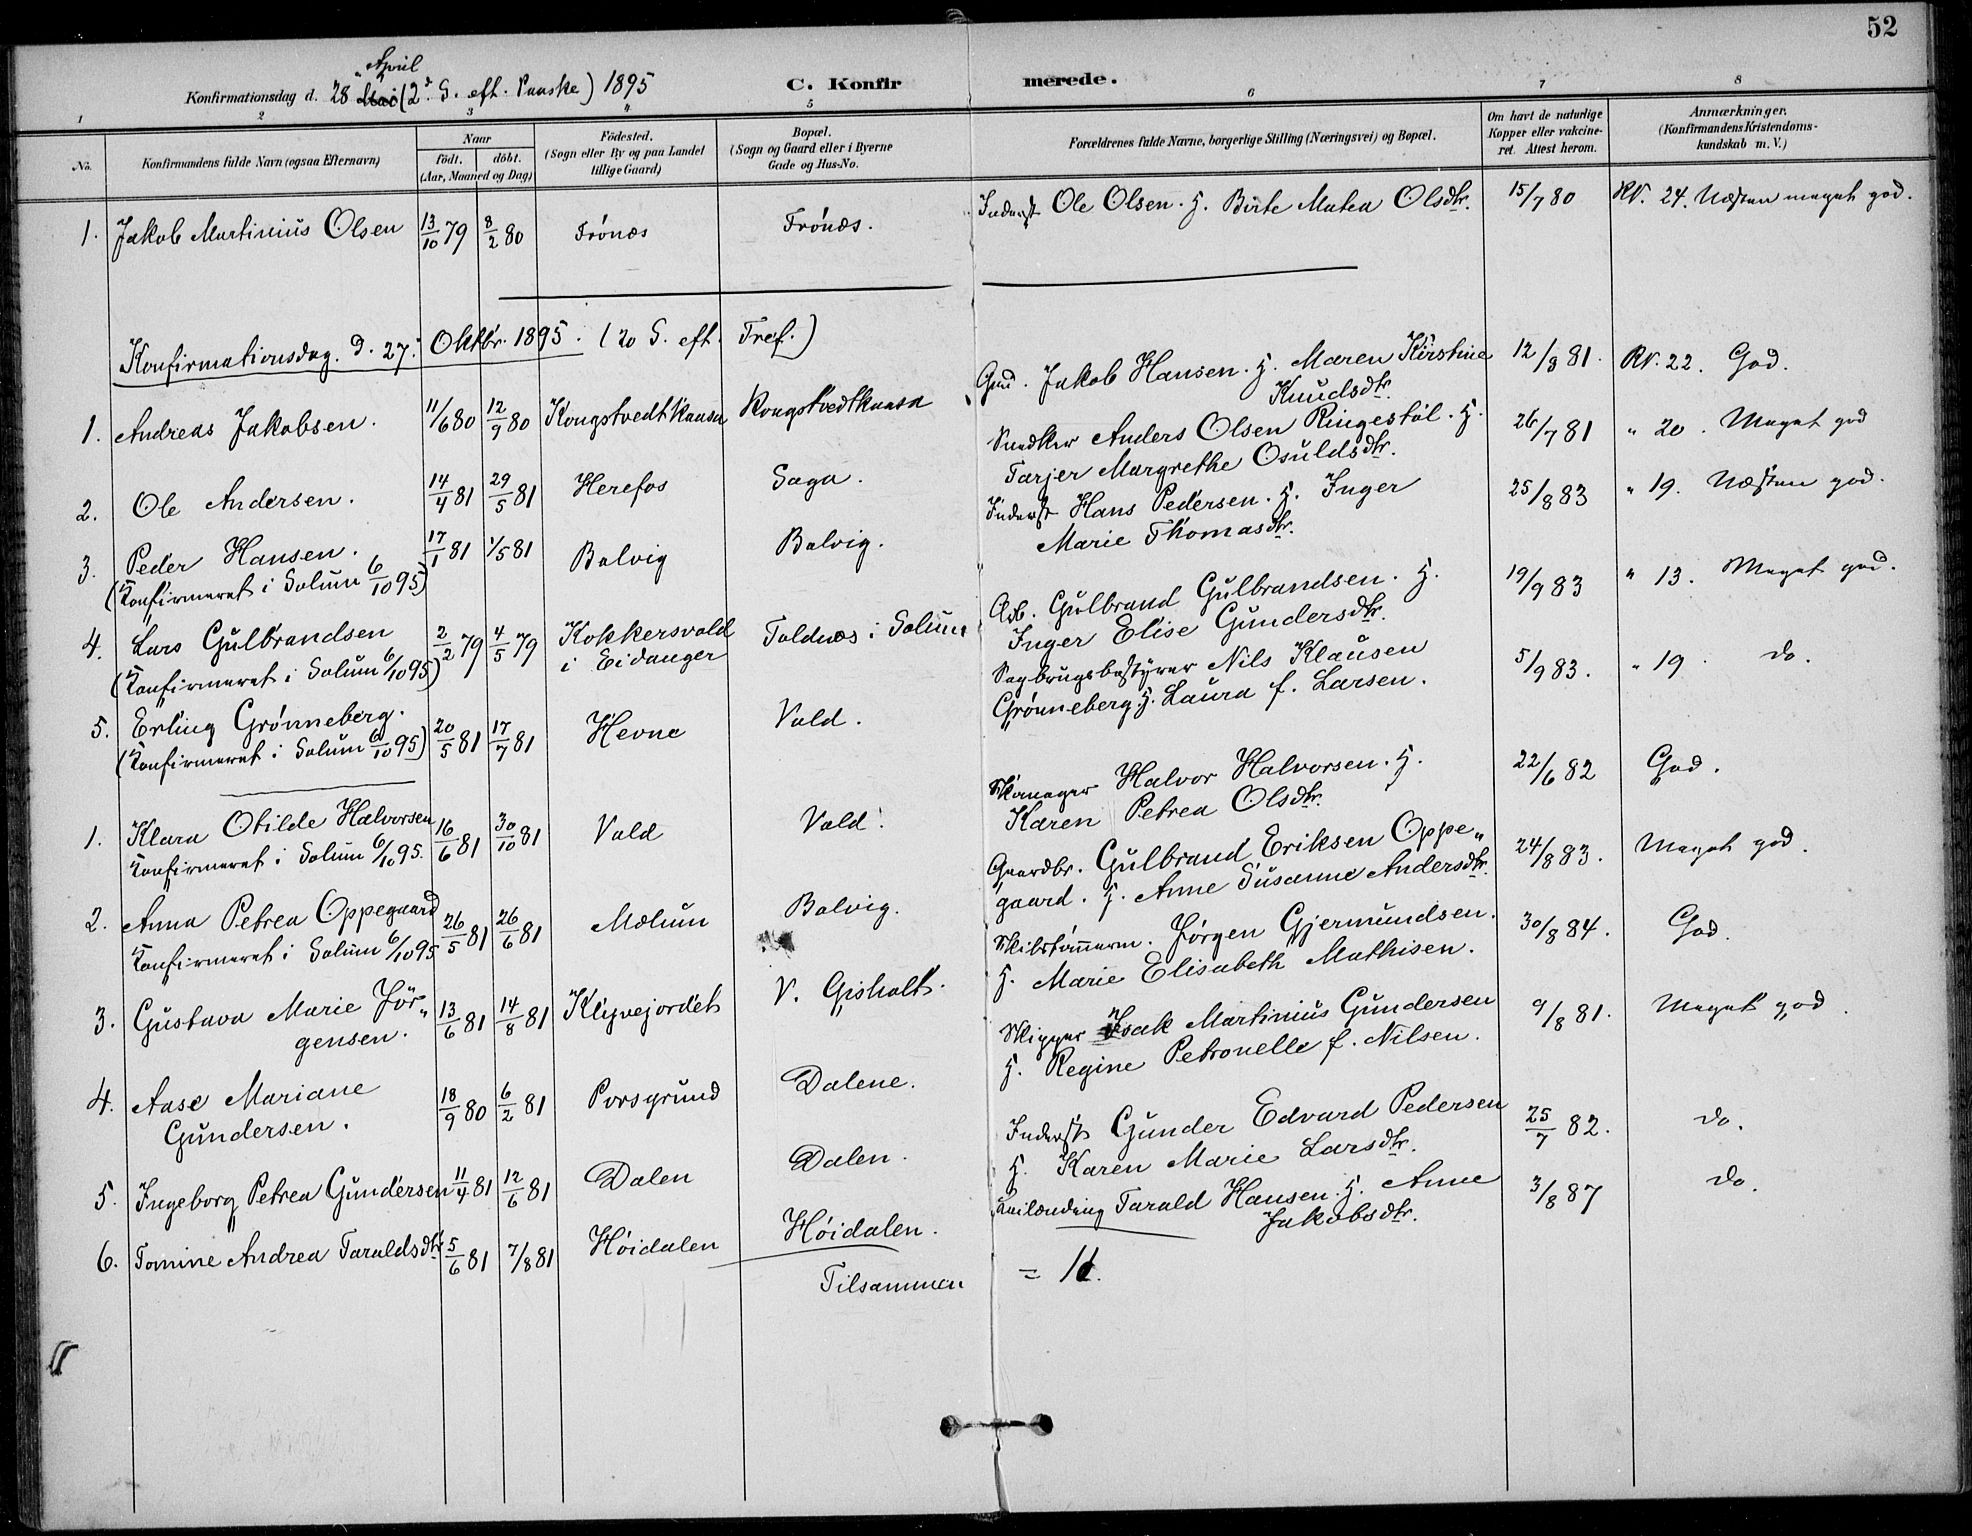 52
April
Konfirmationsdag d. 28 Mai (2d. S. eft. Paaske) 1895
C. Konfirmerede.
1 2 3 4 5 6 7 8
No.
Konfirmandens fulde Navn (ogsaa Efternavn)
Naar
födt. döbt.
(Aar, Maaned og Dag)
Födested.
(Sogn eller By og paa Landet
tillige Gaard)
Bopæl.
(Sogn og Gaard eller i Byerne
Gade og Hus-No.
Forældrenes fulde Navne, borgerlige Stilling (Næringsvei) og Bopæl.
Om havt de naturlige
Kopper eller vakcine-
ret. Attest herom.
Anmærkninger.
(Konfirmandens Kristendoms-
kundskab m. V.)
1. Jakob Martinius Olsen 13/10 79 8/2 80 Trönæs Trönæs. Inderst Ole Olsen. H. Birte Matea Olsdtr. 15/7 80 Kl. 24. Næsten meget god.
Konfirmationsdag. d. 27. Oktbr. 1895. (20 S. eft. Tref.)
1. Andreas Jakobsen. 11/6 80 12/9 80 Kongstvedtkaasa Kongstvedtkaasa Gmd. Jakob Hansen. H. Maren Kirstine 12/8 81. Kl. 22. God.
Knudsdtr.
2. Ole Andersen. 14/4 81 29/5 81 Herefos Saga. Snedker Anders Olsen Ringestöl. H. 26/7 81 " 20. Meget god
Tarjer Margrethe Osuldsdtr.
3. Peder Hansen. 17/1 81 1/5 81 Bolvig Bolvig. Inderst Hans Pedersen. H. Inger 25/8 83 " 19. Næsten god.
(Konfirmeret i Solum 6/10 95) Marie Thomasdtr.
4. Lars Gulbrandsen 2/2 79 4/5 79 Kokkersvold Toldnæs i Solum Arb. Gulbrand Gulbrandsen. H. 19/9 83 " 13. Meget god.
(Konfirmeret i Solum 6/10 95) i Eidanger Inger Elise Gundersdtr.
5. Erling Grönneberg. 20/5 81 17/7 81 Hevne Vold. Sagbrugsbestyrer Nils Klausen 5/9 83. " 19. do.
(Konfirmeret i Solum 6/10 95) Grönneberg. H. Laura f. Larsen.
1. Klara Otilde Halvorsen 16/6 81 30/10 81 Vold Vold. Skomager Halvor Halvorsen. H. 22/6 82 God.
Konfirmeret i Solum 6/10 95. Karen Petrea Olsdtr.
2. Anna Petrea Oppegaard 26/5 81 26/6 81 Mælum Bolvig. Gaardbr. Gulbrand Eriksen Oppe„ 24/8 83. Meget god.
Konfirmeret i Solum 6/10 95 gaard. H. Anne Susanne Andersdtr.
3. Gustava Marie Jör„ 13/6 81 14/8 81 Klyvejordet V. Gisholt. Skibstömerm. Jörgen Gjermundsen. 30/8 84. God.
gensen. H. Marie Elisabeth Mathisen.
4. Aase Mariane 18/9 80 6/2 81 Porsgrund Dalene. Skipper Isak Martinius Gundersen 9/8 81. Meget god.
Gundersen. H. Regine Petronelle f. Nilsen.
5. Ingeborg Petrea Gundersen 11/4 81 12/6 81 Dalen Dalen. Inderst Gunder Edvard Pedersen 25/7 82. do.
H. Karen Marie Larsdtr.
6. Tomine Andrea Taraldsdtr 5/6 81 7/8 81 Höidalen Höidalen. Leilænding Tarald Hansen. H. Anne 3/8 87 do.
Jakobsdtr.
Tilsammen = 11.